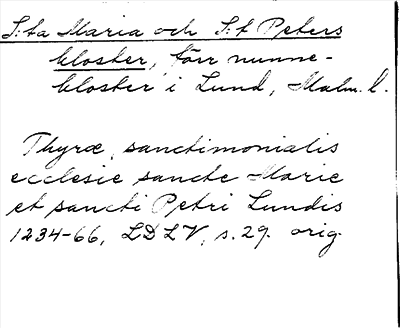 S:ta Maria och S:t Peters
kloster, förr nunne-
kloster i Lund, Malm. l.
Thyræ, sanctimonialis
ecclesie sancte Marie
et sancti Petri Lundis
1234-66, LDLV, s. 29. orig.